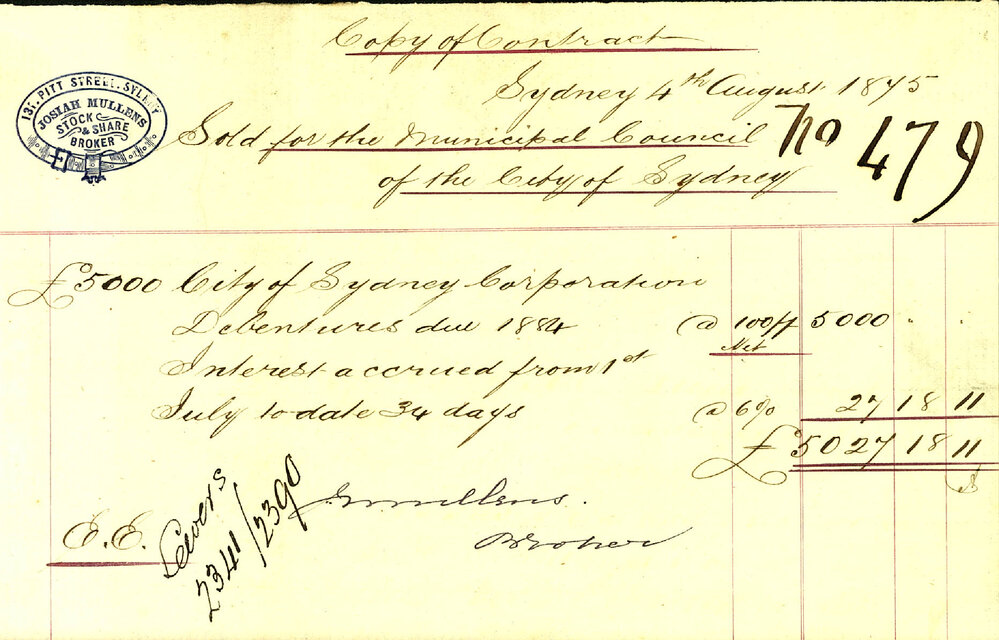 Copy of Contract
Sydney 4th August 1875
131. PITT STREET. SYDNEY
JOSIAH MULLENS
STOCK
& SHARE
BROKER
Sold for the Municipal Council
of the City of Sydney
No 479
£5000 City of Sydney Corporation
Debentures due 1884 @ 100 5000 " "
Net
Interest accrued from 1st
July to date 34 days @ 6% 27 18 11
£5027 18 11
Sewers
2341/2390
J Mullens.
Broker
E.E.